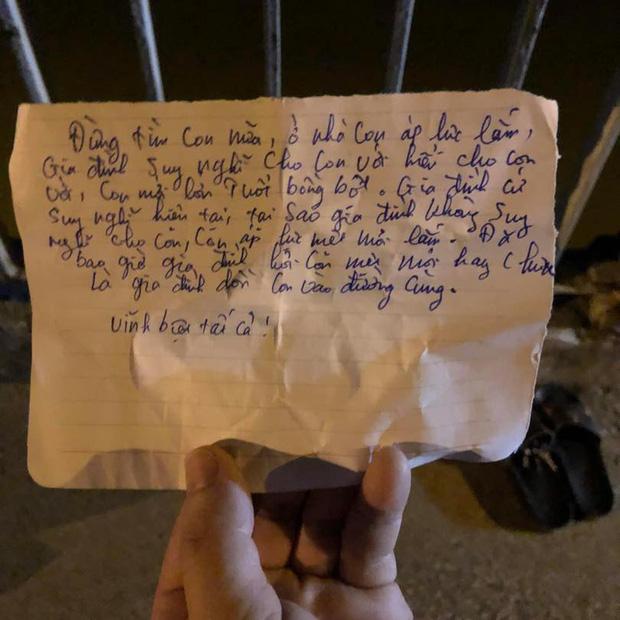 Đừng tìm con nữa, ở nhà con áp lực lắm,
Gia đình suy nghĩ cho con với hiểu cho con
với, con mới hơn tuổi bồng bột. Gia đình cứ
suy nghĩ hiện tại, tại sao gia đình không suy
nghĩ cho con, con áp lực mệt mỏi lắm. Đã
bao giờ gia đình hỏi con mệt mỏi hay chưa
là gia đình dồn con vào đường cùng.
Vĩnh biệt tất cả!